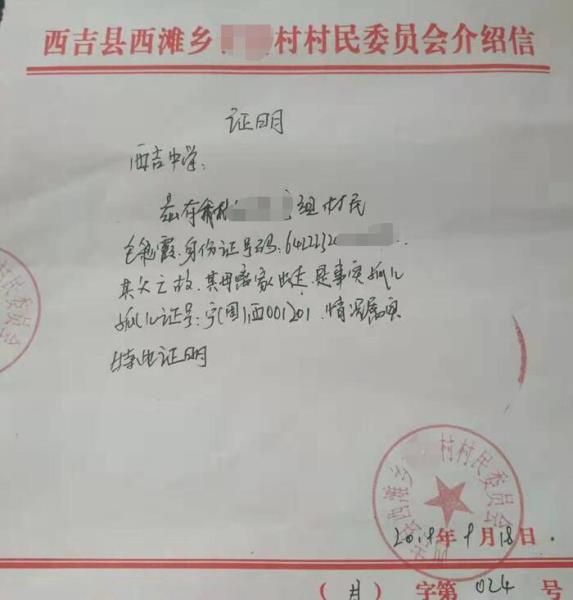 西吉县西滩乡 村村民委员会介绍信
证明
西吉中学:
兹有 组村民
身份证号码:642223
其父亡故.其母离家出走.是事实孤儿
孤儿证号:宁(国)西001201.情况属实
特此证明
西滩乡 村村民委员会
村民委员会
2019年9月18日.
(月)字第024号